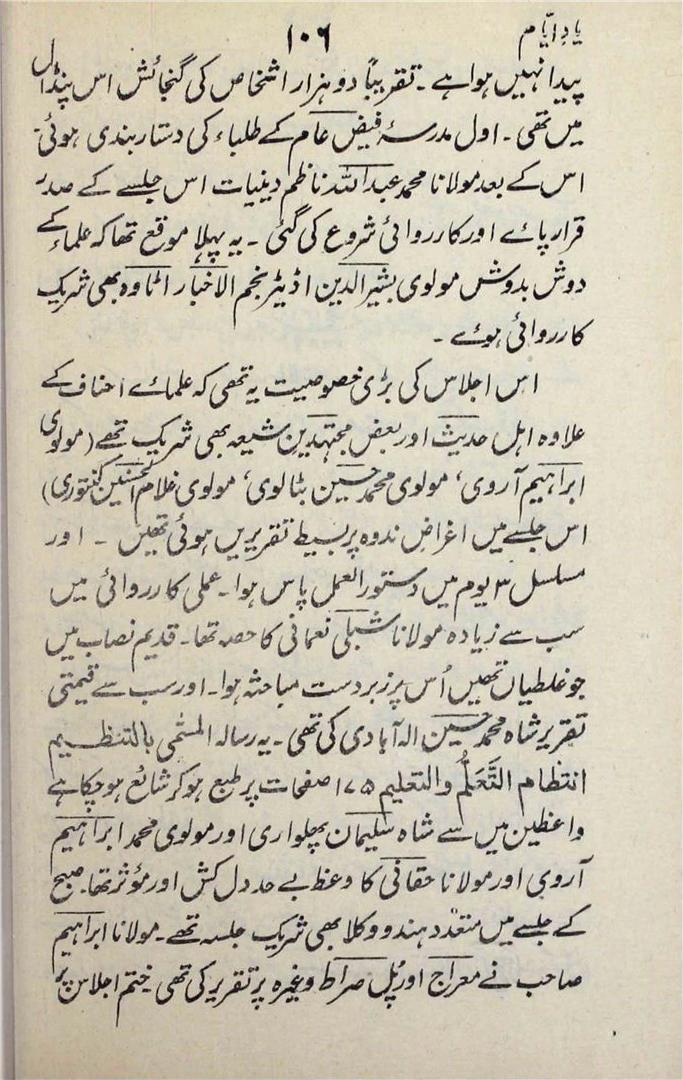 یادِ ایّام
۱۰۶
پیدا نہیں ہوا ہے ۔ تقریباً دو ہزار اشخاص کی گنجائش اس پنڈال
میں تھی ۔ اول مدرسۂ فیض عام کے طلباء کی دستار بندی ہوئی۔
اس کے بعد مولانا محمد عبداللہ ناظم دینیات اس جلسے کے صدر
قرار پائے اور کارروائی شروع کی گئی ۔ یہ پہلا موقع تھا کہ علماء کے
دوش بدوش مولوی بشیر الدین اڈیٹر نجم الاخبار اٹاوہ بھی شریک
کارروائی ہوئے ۔
اس اجلاس کی بڑی خصوصیت یہ تھی کہ علمائے احناف کے
علاوہ اہل حدیث اور بعض مجتہدین شیعہ بھی شریک تھے (مولوی
ابراہیم آروی، مولوی محمد حسین بٹالوی، مولوی غلام الحسنین کنتوری)
اس جلسے میں اغراض ندوہ پر بسیط تقریریں ہوئی تھیں ۔ اور
مسلسل ۳ یوم میں دستور العمل پاس ہوا ۔ عملی کارروائی میں
سب سے زیادہ مولانا شبلی نعمانی کا حصہ تھا ۔ قدیم نصاب میں
جو غلطیاں تھیں اُس پر زبردست مباحثہ ہوا ۔ اور سب سے قیمتی
تقریر شاہ محمد حسین الہ آبادی کی تھی ۔ یہ رسالہ المسمّی بالتنظیم
انتظام التَّعَلُّم والتعلیم ۱۷۵ صفحات پر طبع ہو کر شائع ہو چکا ہے
واعظین میں سے شاہ سلیمان پھلواری اور مولوی محمد ابراہیم
آروی اور مولانا حقانی کا وعظ بے حد دل کش اور مؤثر تھا ۔ صبح
کے جلسے میں متعدّد ہندو وکلا بھی شریک جلسہ تھے ۔ مولانا ابراہیم
صاحب نے معراج اور پُل صراط وغیرہ پر تقریر کی تھی ۔ ختم اجلاس پر